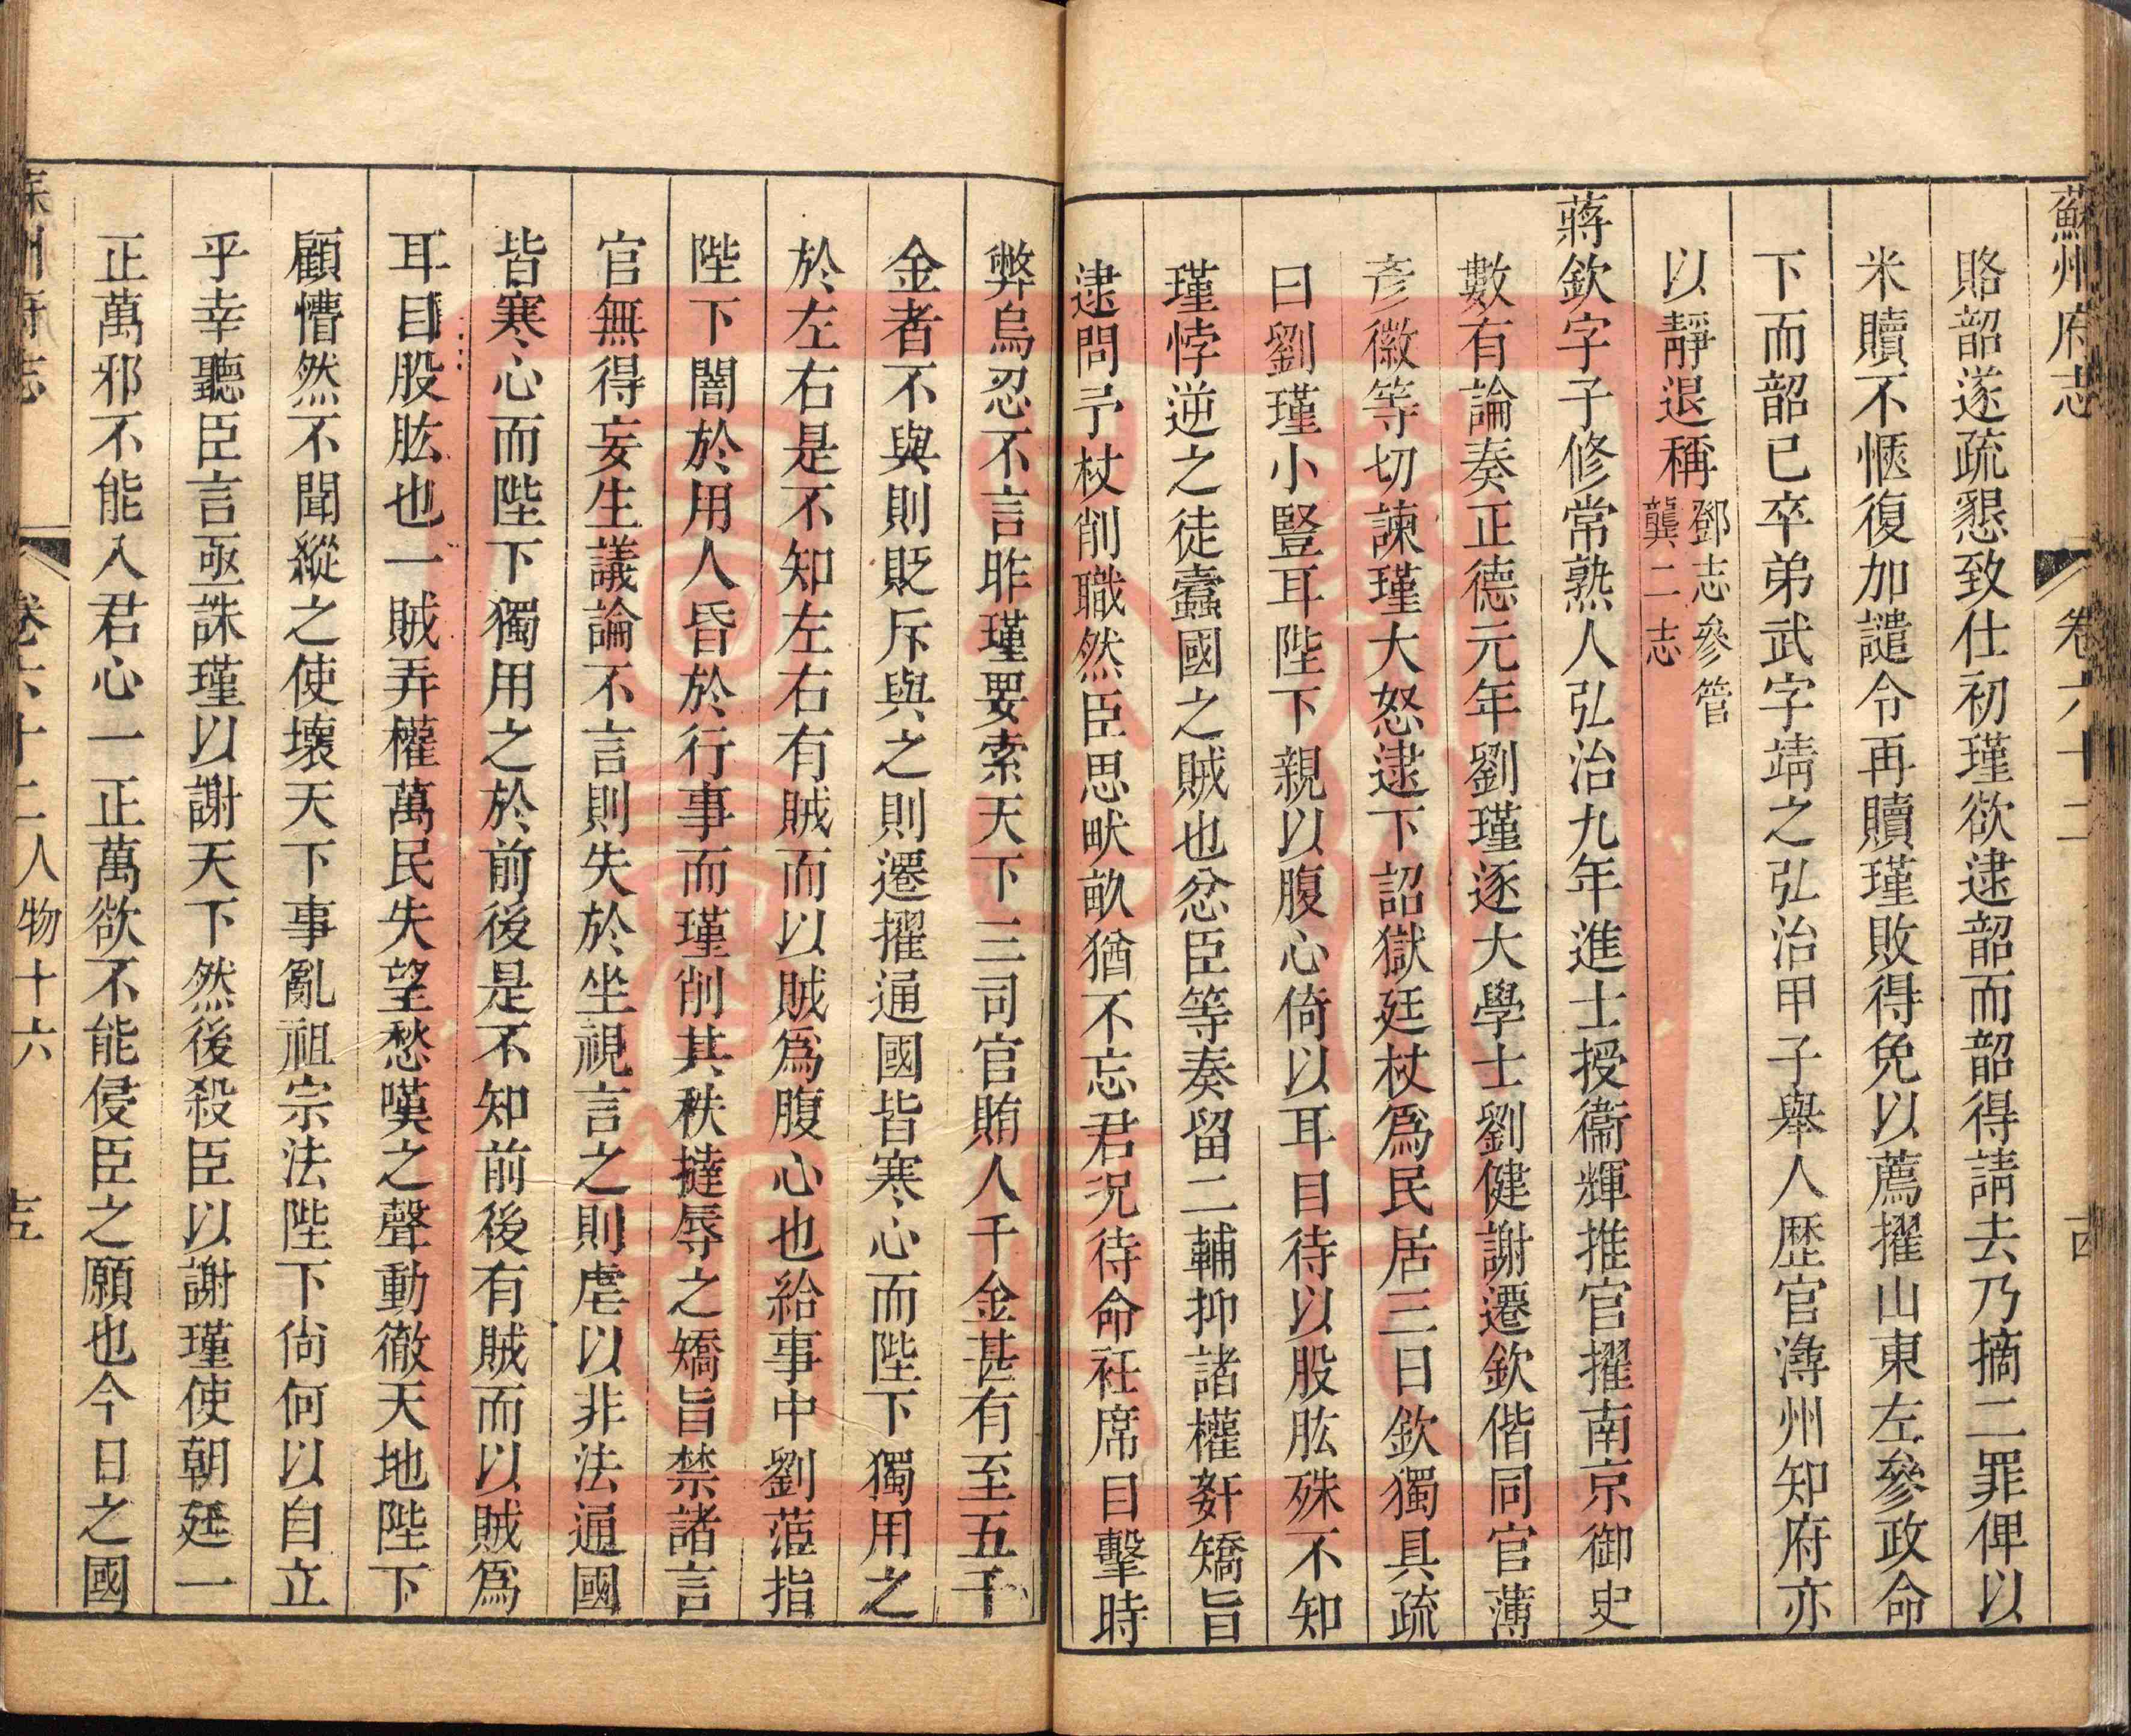 蘇州府志 卷六十二
賂韶遂疏懇致仕初瑾欲逮韶而韶得請去乃摘二罪俾以
米贖不愜復加譴令再贖瑾敗得免以薦擢山東左參政命
下而韶已卒弟武字靖之弘治甲子舉人歷官漳州知府亦
以靜退稱鄧志參管龔二志
蔣欽字子修常熟人弘治九年進士授衞輝推官擢南京御史
數有論奏正德元年劉瑾逐大學士劉健謝遷欽偕同官薄
彥徽等切諫瑾大怒逮下詔獄廷杖爲民居三日欽獨具疏
曰劉瑾小豎耳陛下親以腹心倚以耳目待以股肱殊不知
瑾悖逆之徒蠹國之賊也忿臣等奏留二輔抑諸權姧矯旨
逮問予杖削職然臣思畎畝猶不忘君況待命衽席目擊時
弊烏忍不言昨瑾要索天下三司官賄人千金甚有至五千
金者不與則貶斥與之則遷擢通國皆寒心而陛下獨用之
於左右是不知左右有賊而以賊爲腹心也給事中劉菃指
陛下闇於用人昏於行事而瑾削其秩撻辱之矯旨禁諸言
官無得妄生議論不言則失於坐視言之則虐以非法通國
皆寒心而陛下獨用之於前後是不知前後有賊而以賊爲
耳目股肱也一賊弄權萬民失望愁嘆之聲動徹天地陛下
顧懵然不聞縱之使壞天下事亂祖宗法陛下尙何以自立
乎幸聽臣言亟誅瑾以謝天下然後殺臣以謝瑾使朝廷一
正萬邪不能入君心一正萬欲不能侵臣之願也今日之國
蘇州府志 卷六十二人物十六